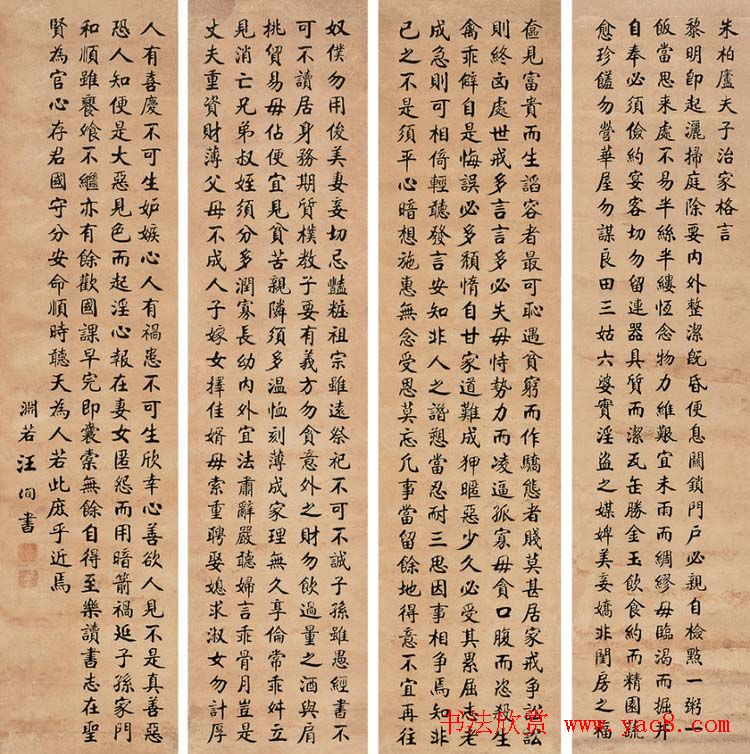 朱柏廬夫子治家格言
黎明即起灑掃庭除要內外整潔既昏便息關鎖門戶必親自檢點一粥一
飯當思來處不易半絲半縷恆念物力維艱宜未雨而綢繆毋臨渴而掘井
自奉必須儉約宴客切勿留連器具質而潔瓦缶勝金玉飲食約而精園蔬
愈珍饈勿營華屋勿謀良田三姑六婆實淫盜之媒婢美妾嬌非閨房之福
奩見富貴而生諂容者最可恥遇貧窮而作驕態者賤莫甚居家戒爭訟訟
則終凶處世戒多言言多必失毋恃勢力而凌逼孤寡毋貪口腹而恣殺生
禽乖僻自是悔誤必多頹惰自甘家道難成狎暱惡少久必受其累屈志老
成急則可相倚輕聽發言安知非人之譖愬當忍耐三思因事相爭焉知非
己之不是須平心暗想施惠無念受恩莫忘凡事當留餘地得意不宜再往
奴僕勿用俊美妻妾切忌豔粧祖宗雖遠祭祀不可不誠子孫雖愚經書不
可不讀居身務期質樸教子要有義方勿貪意外之財勿飲過量之酒與肩
挑貿易毋佔便宜見貧苦親隣須多溫恤刻薄成家理無久享倫常乖舛立
見消亡兄弟叔姪須分多潤寡長幼內外宜法肅辭嚴聽婦言乖骨肉豈是
丈夫重資財薄父母不成人子嫁女擇佳婿毋索重聘娶媳求淑女勿計厚
人有喜慶不可生妒嫉心人有禍患不可生欣幸心善欲人見不是真善惡
恐人知便是大惡見色而起淫心報在妻女匿怨而用暗箭禍延子孫家門
和順雖饔飧不繼亦有餘歡國課早完即囊橐無餘自得至樂讀書志在聖
賢為官心存君國守分安命順時聽天為人若此庶乎近焉
淵若汪洵書
书法欣赏 www.yac8.com